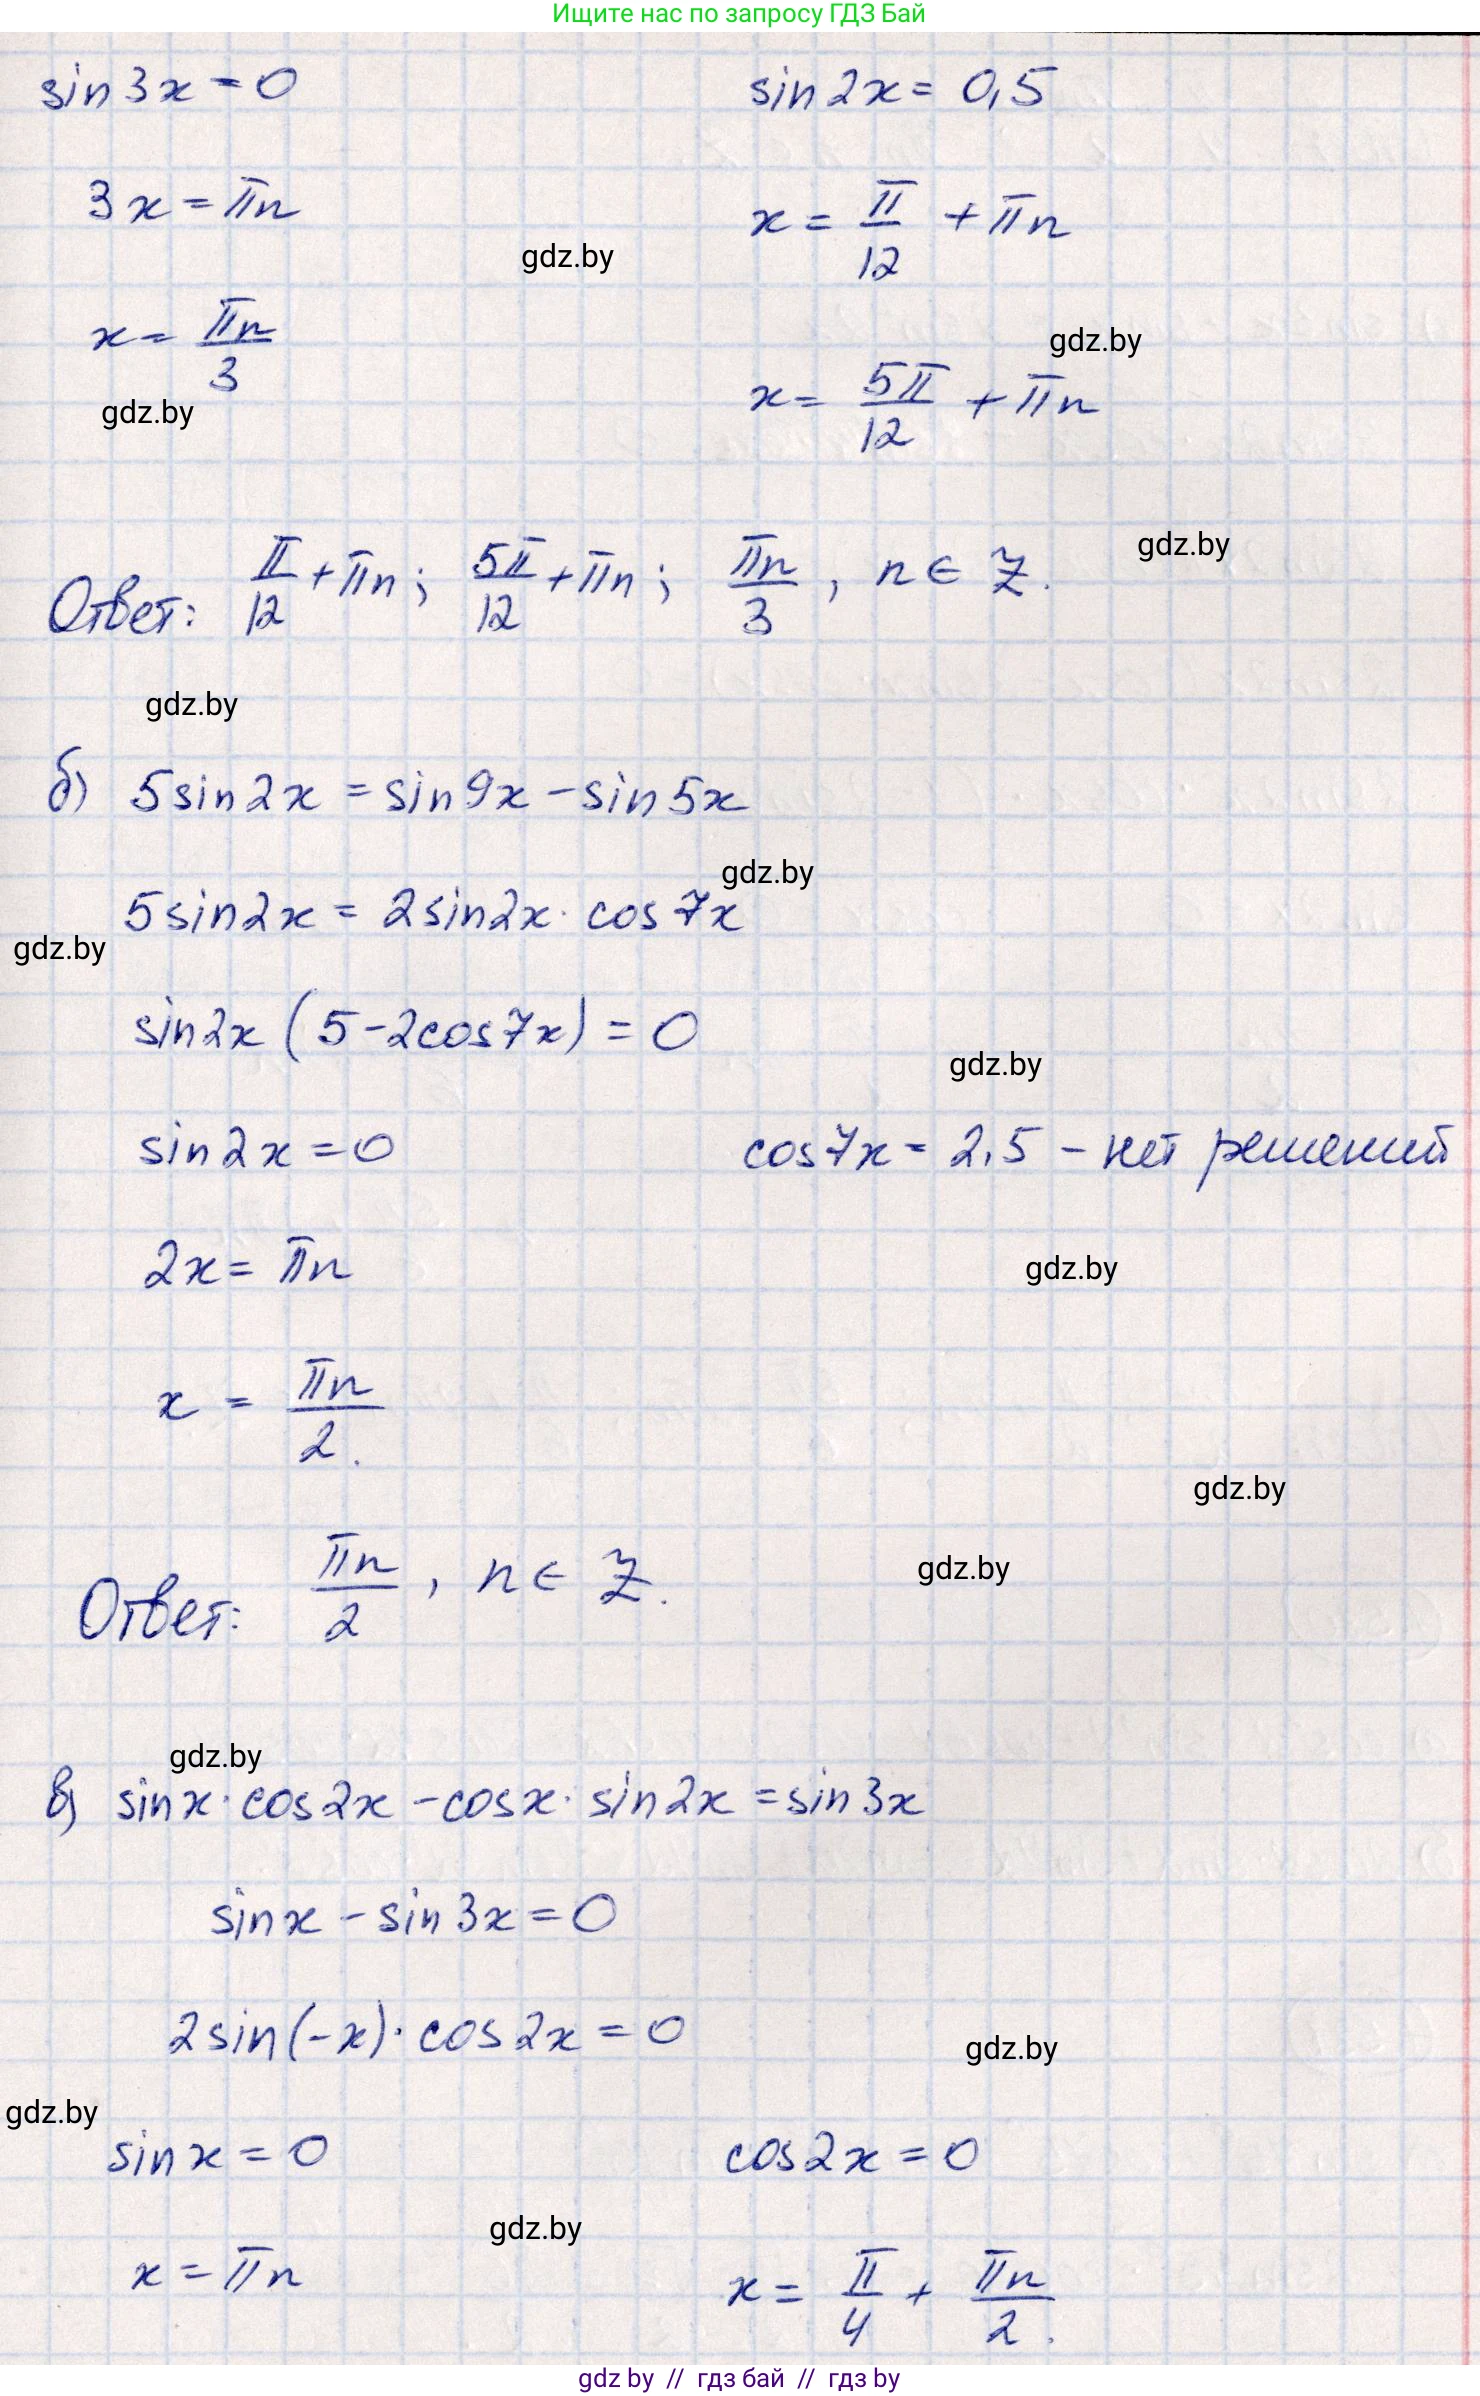 Ищите нас по запросу ГДЗ Бай
sin3x = 0
sin2x = 0,5
3x = πn
x = π/12 + πn
gdz.by
x = πn/3
gdz.by
x = 5π/12 + πn
gdz.by
Ответ: π/12 + πn; 5π/12 + πn; πn/3, n ∈ Z.
gdz.by
gdz.by
б) 5sin2x = sin9x - sin5x
gdz.by
5sin2x = 2sin2x · cos7x
gdz.by
sin2x (5 - 2cos7x) = 0
gdz.by
sin2x = 0
cos7x = 2,5 - нет решений
2x = πn
gdz.by
x = πn/2.
gdz.by
Ответ: πn/2, n ∈ Z.
gdz.by
gdz.by
в) sinx · cos2x - cosx · sin2x = sin3x
sinx - sin3x = 0
2sin(-x) · cos2x = 0
gdz.by
gdz.by
sinx = 0
cos2x = 0
gdz.by
x = πn
x = π/4 + πn/2.
gdz by // гдз бай // гдз by